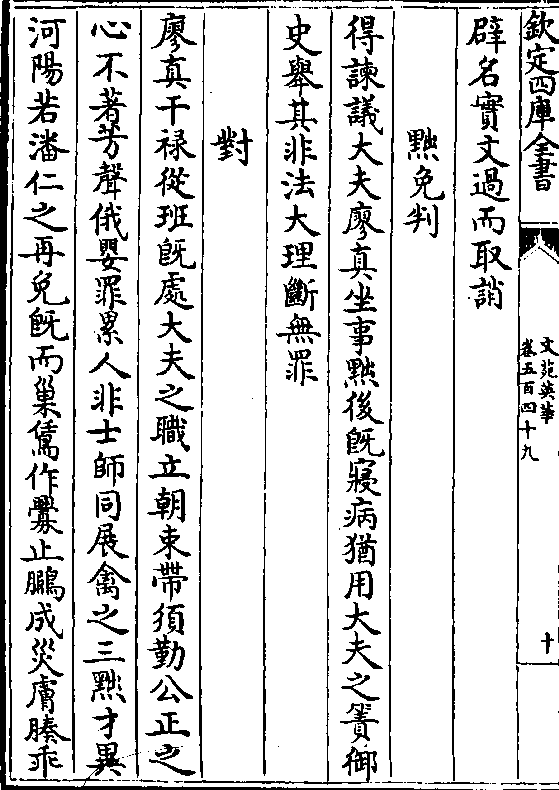 欽定四庫全書
文苑英華
卷五百四十九
十
辟名實文過而取誚
黜免判
得諫議大夫廖真坐事黜後旣寢病猶用大夫之簀御
史舉其非法大理斷無罪
對
廖真干禄從班旣處大夫之職立朝束帶須勤公正之
心不著芳聲俄嬰罪累人非士師同展禽之三黜才異
河陽若潘仁之再免旣而巢鵀作釁止鵩成災膚腠乖